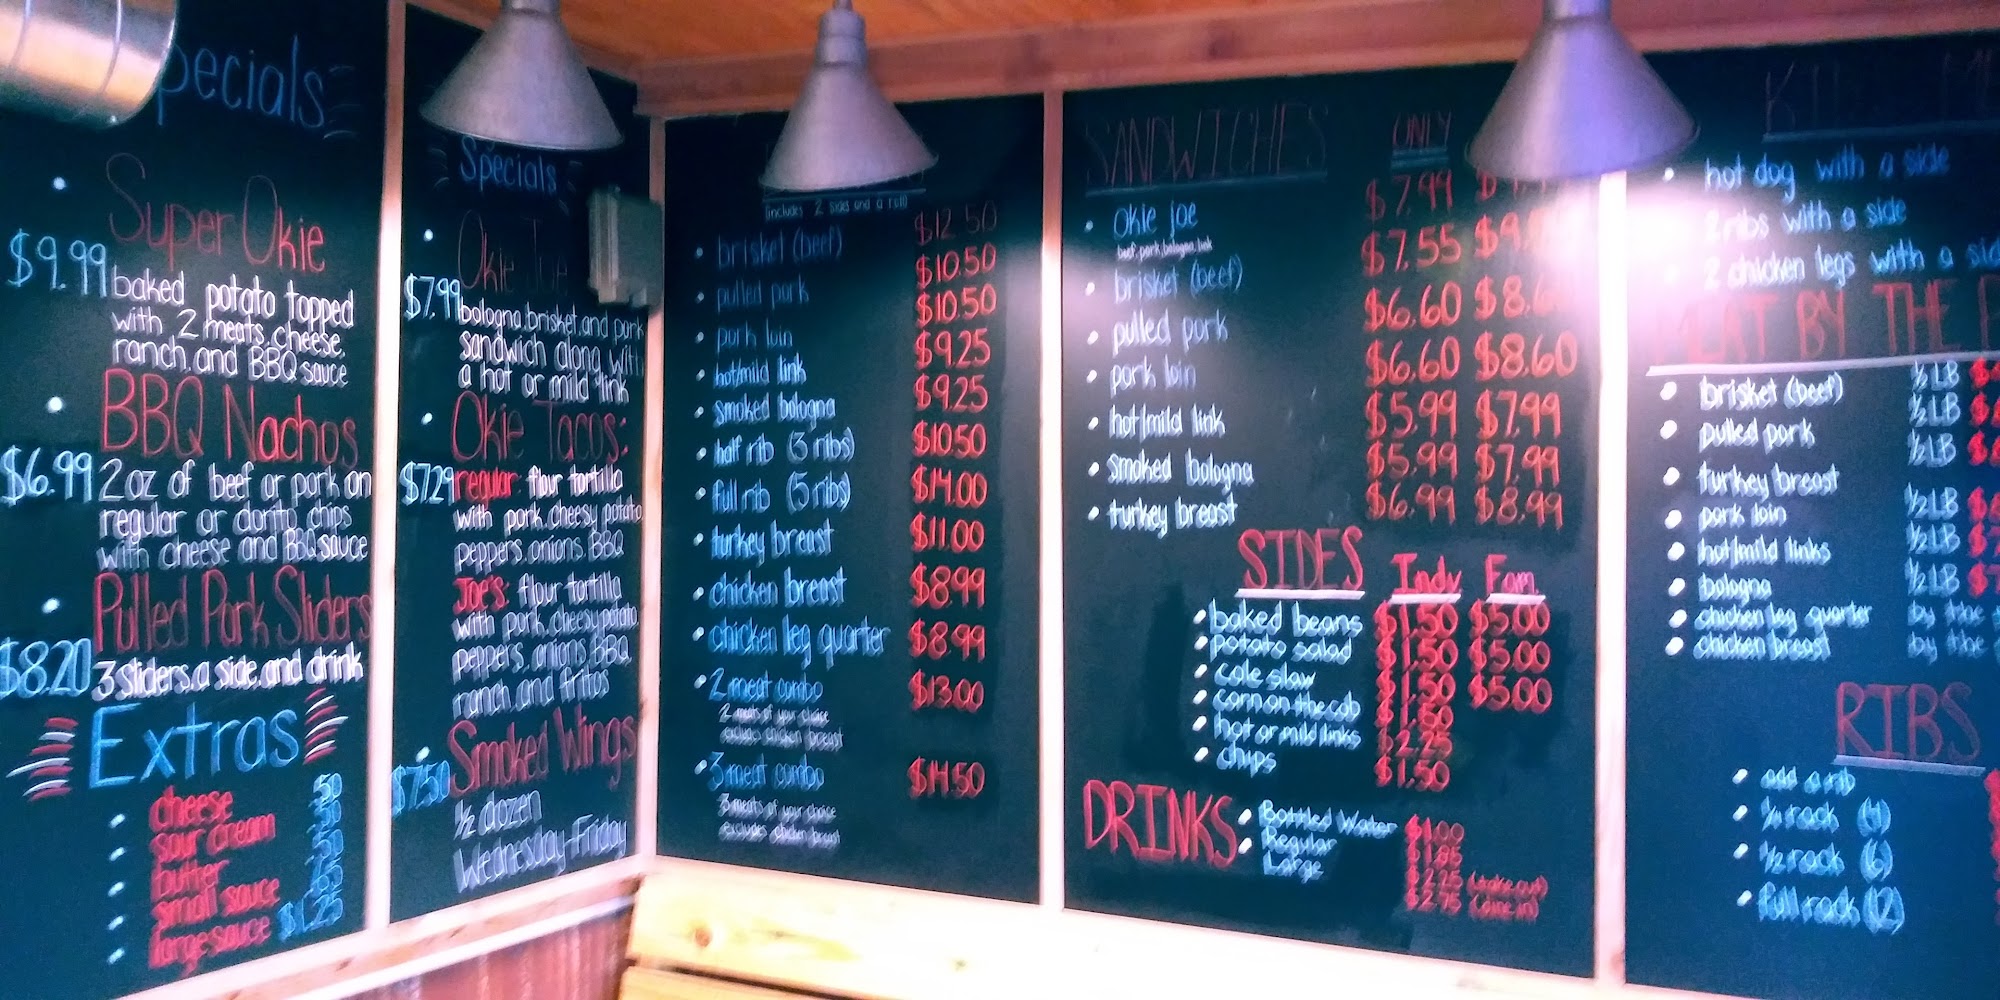 Specials
Super Okie
$9.99 baked potato topped
with 2 meats, cheese,
ranch, and BBQ sauce
BBQ Nachos
$6.99 2 oz of beef or pork on
regular or dorito chips
with cheese and BBQ sauce
Pulled Pork Sliders
$8.20 3 sliders, a side, and drink
Extras
cheese .50
sour cream .50
butter .50
small sauce .65
large sauce $1.25
Specials
Okie
$7.99 bologna, brisket, and pork
sandwich along with
a hot or mild link
Okie Tacos:
$7.29 regular: flour tortilla
with pork, cheesy potato,
peppers, onions, BBQ
Joe's: flour tortilla
with pork, cheesy potato,
peppers, onions, BBQ,
ranch, and fritos
Smoked Wings
$7.50 1/2 dozen
Wednesday-Friday
(includes 2 sides and a roll)
brisket (beef) $12.50
pulled pork $10.50
pork loin $10.50
hot/mild link $9.25
smoked bologna $9.25
half rib (3 ribs) $10.50
full rib (5 ribs) $14.00
turkey breast $11.00
chicken breast $8.99
chicken leg quarter $8.99
2 meat combo $13.00
2 meats of your choice
excludes chicken breast
3 meat combo $14.50
3 meats of your choice
excludes chicken breast
SANDWICHES ONLY
okie joe $7.99
beef, pork, bologna, link
brisket (beef) $7.55
pulled pork $6.60
pork loin $6.60 $8.60
hot/mild link $5.99 $7.99
smoked bologna $5.99 $7.99
turkey breast $6.99 $8.99
SIDES Indv Fam
baked beans $1.50 $5.00
potato salad $1.50 $5.00
cole slaw $1.50 $5.00
corn on the cob $1.50
hot or mild links $2.25
chips $1.50
DRINKS
Bottled Water $1.00
Regular $1.85
Large $2.25 (take out)
$2.75 (dine in)
hot dog with a side
2 ribs with a side
2 chicken legs with a side
MEAT BY THE
brisket (beef) 1/2 LB
pulled pork 1/2 LB
turkey breast 1/2 LB
pork loin 1/2 LB
hot/mild links 1/2 LB
bologna 1/2 LB
chicken leg quarter by the
chicken breast by the
RIBS
add a rib
1/4 rack (4)
1/2 rack (6)
full rack (12)